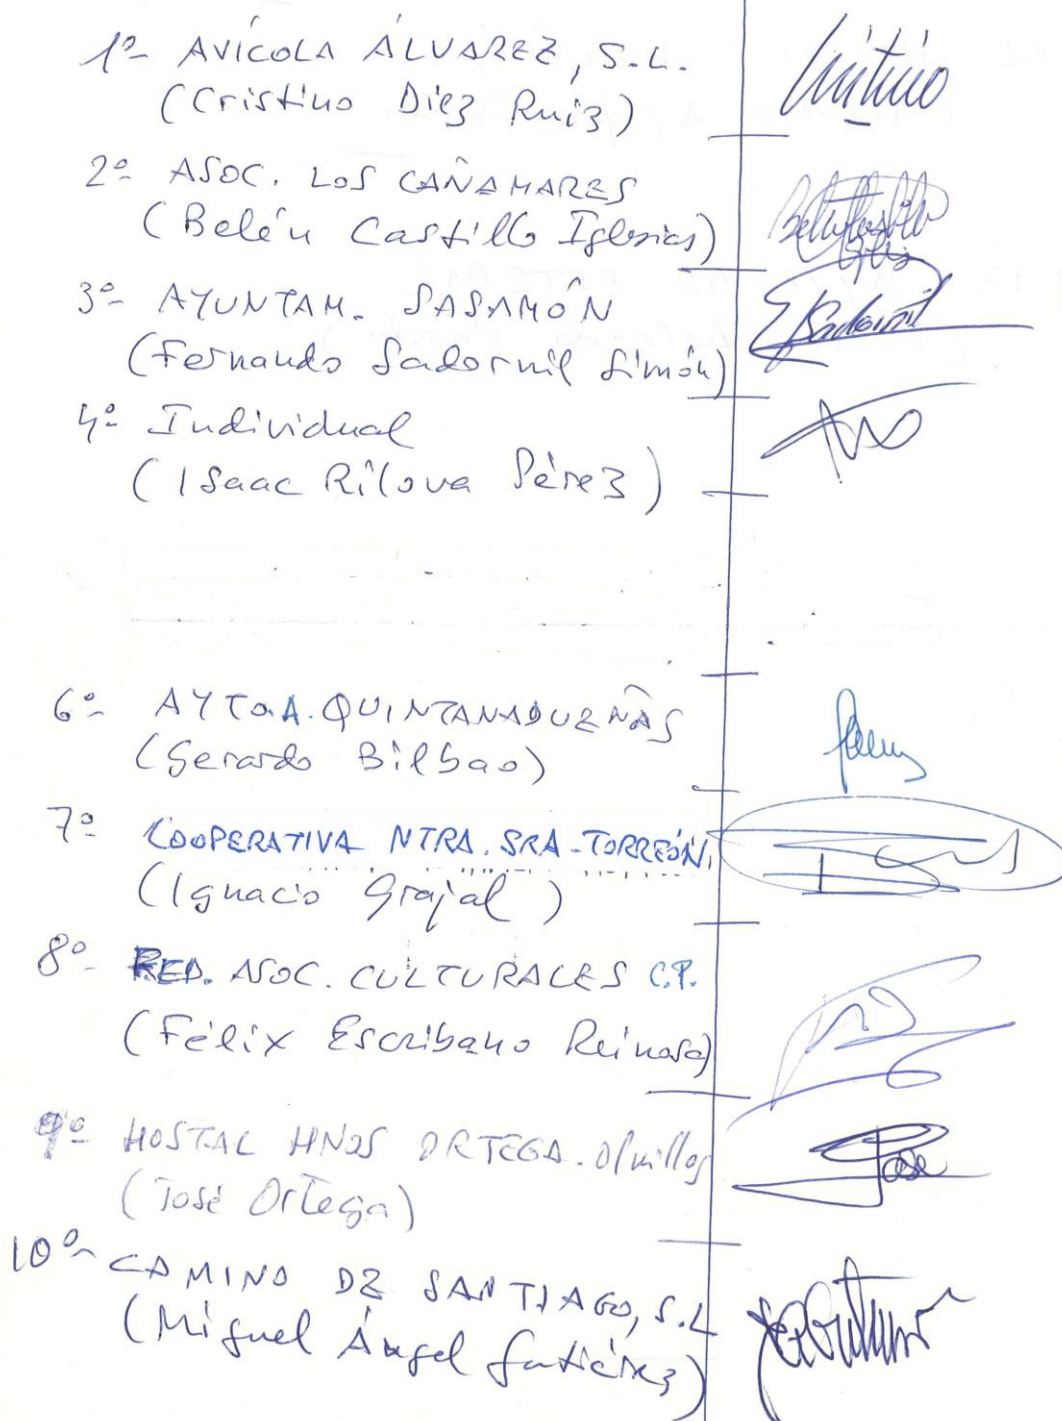 1º- AVÍCOLA ÁLVAREZ, S.L.
(Cristino Díez Ruiz)
2º- ASOC. LOS CAÑAMARES
(Belén Castillo Iglesias)
3º- AYUNTAM. SASAMÓN
(Fernando Sadornil Simón)
4º- Individual
(Isaac Rilova Pérez)
6º- AYTO. A. QUINTANADUEÑAS
(Gerardo Bilbao)
7º COOPERATIVA NTRA. SRA-TORREÓN.
(Ignacio Grajal)
8º- RED. ASOC. CULTURALES C.P.
(Félix Escribano Reinosa)
9º- HOSTAL HNOS ORTEGA. Olmillos
(José Ortega)
José
10º- CAMINO DE SANTIAGO, S.L
(Miguel Ángel Gutiérrez)